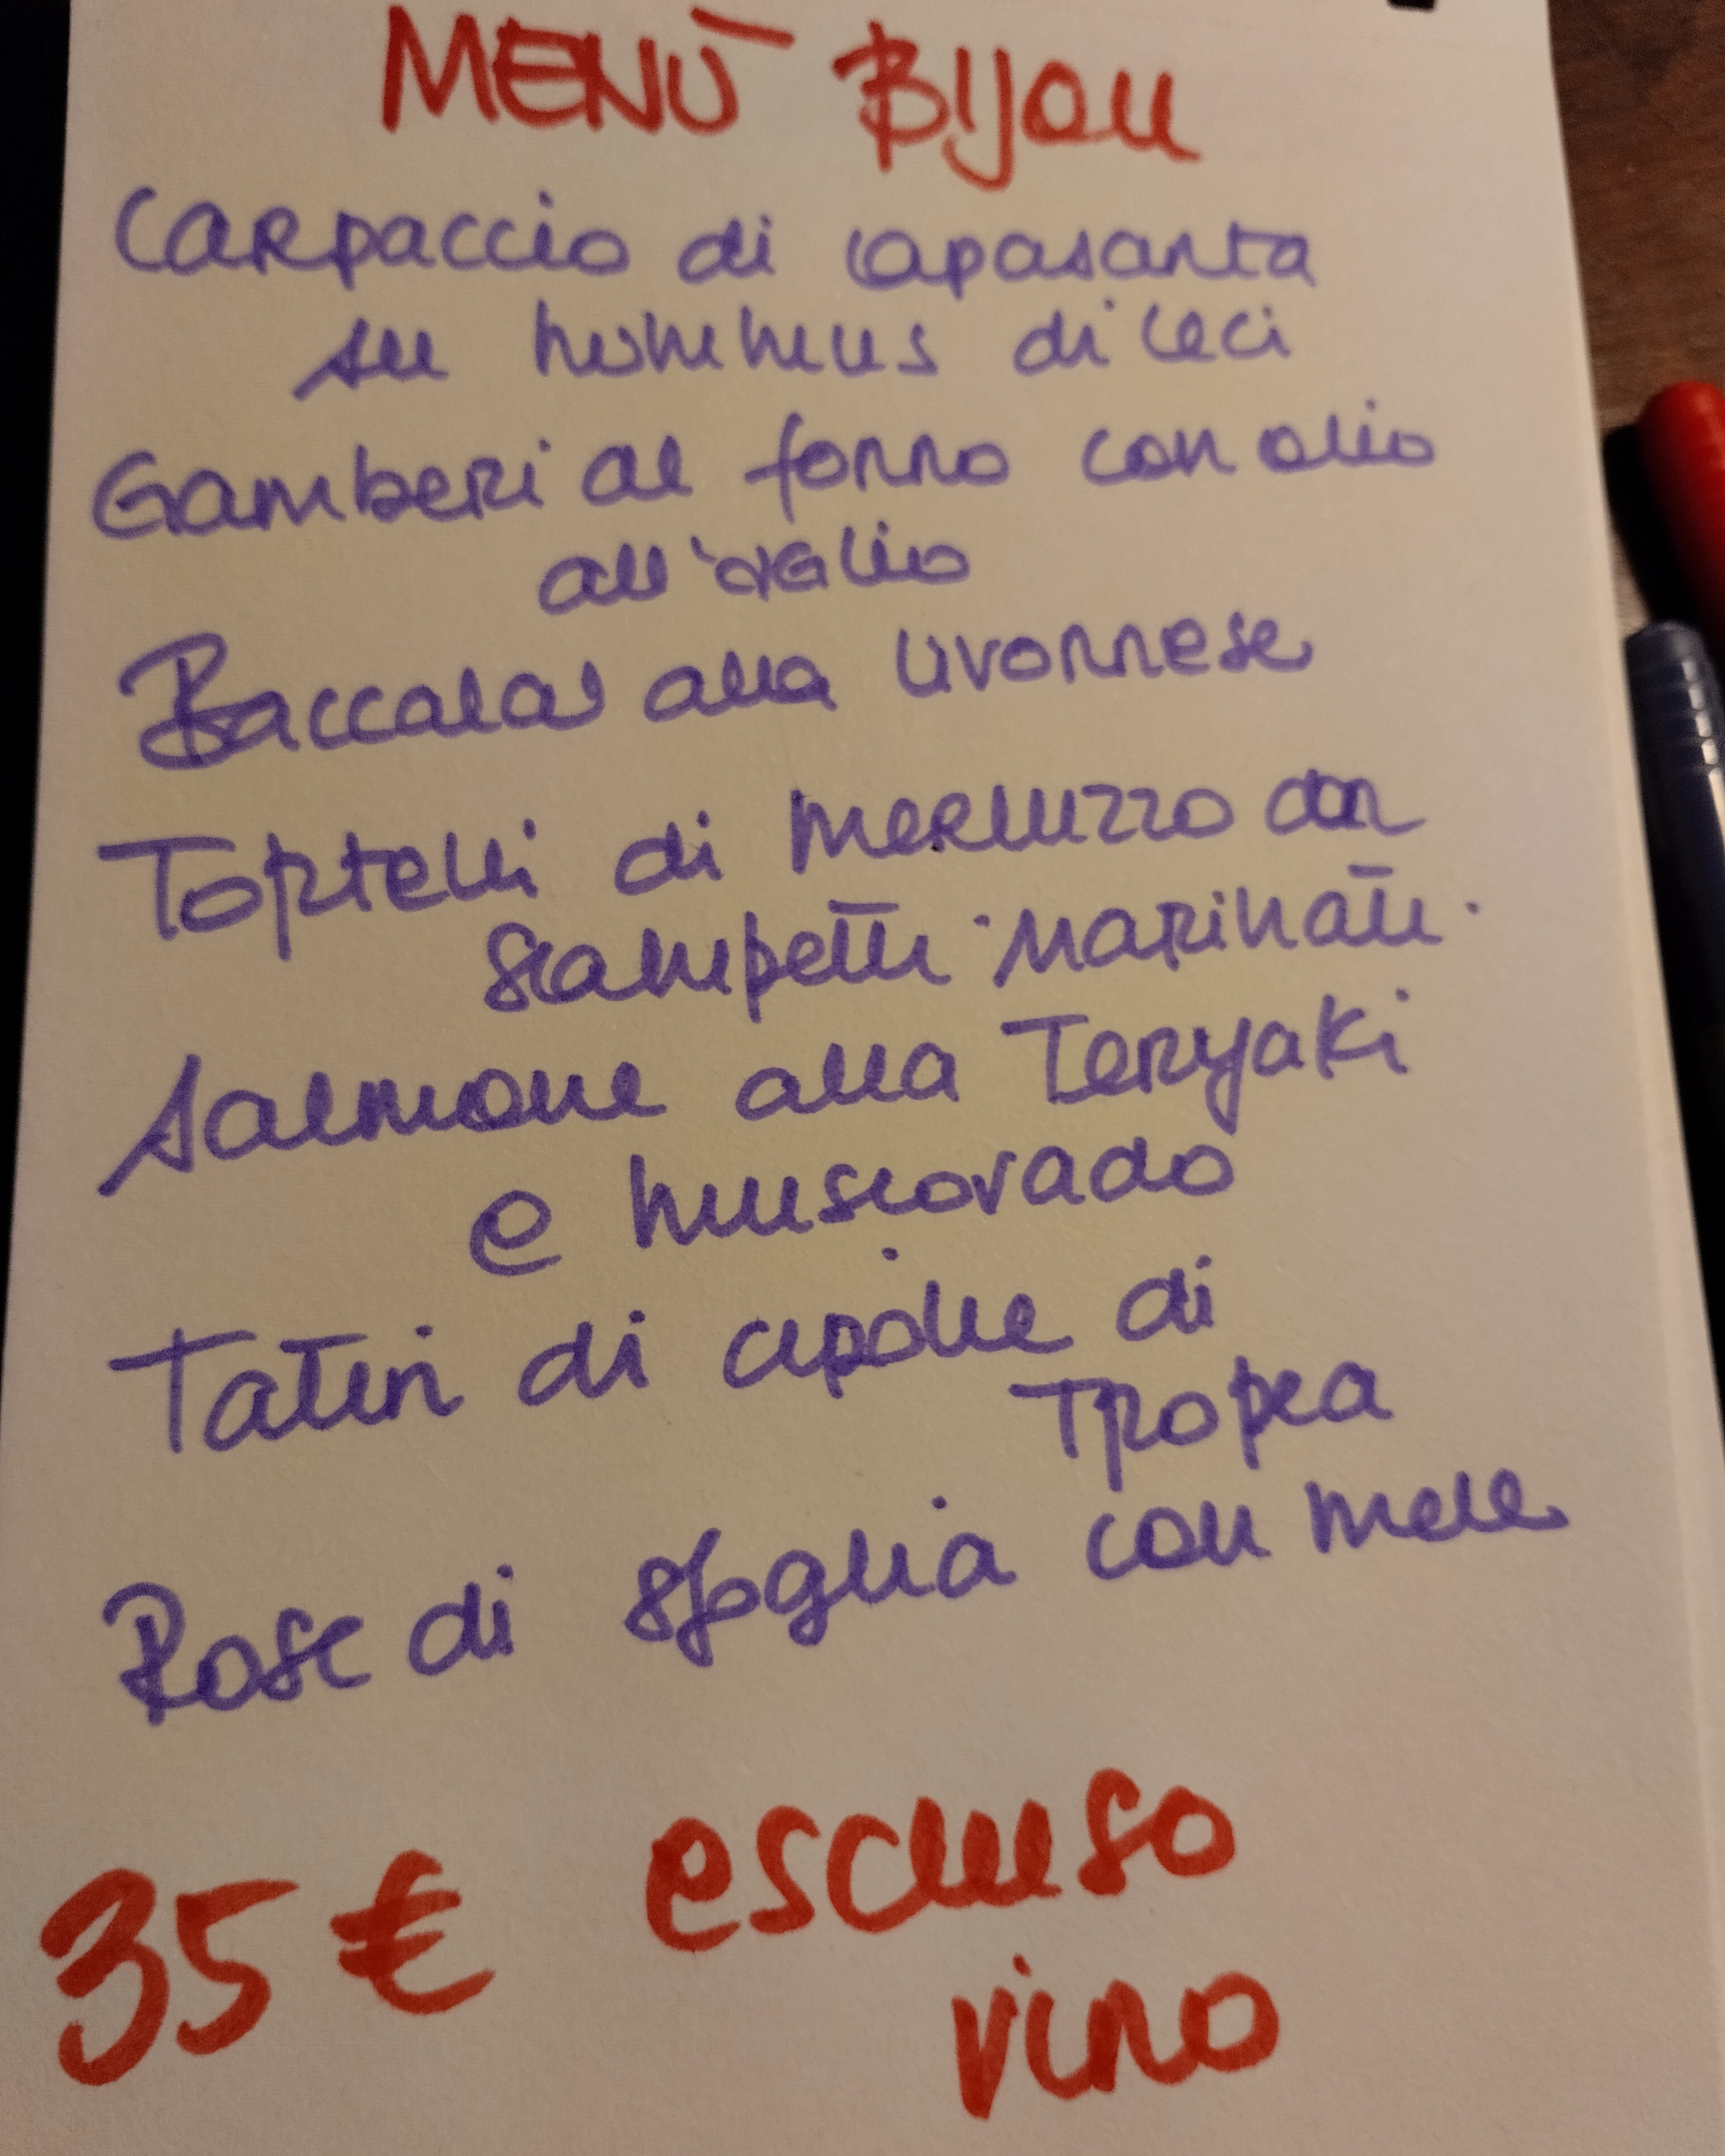 MENÙ BIJOU
Carpaccio di capasanta
su hummus di ceci
Gamberi al forno con olio
all'aglio
Baccalà alla livornese
Tortelli di merluzzo con
scampetti marinati
Salmone alla Teryaki
e muscovado
Tatin di cipolle di
Tropea
Rose di sfoglia con mele
35 € escluso
vino